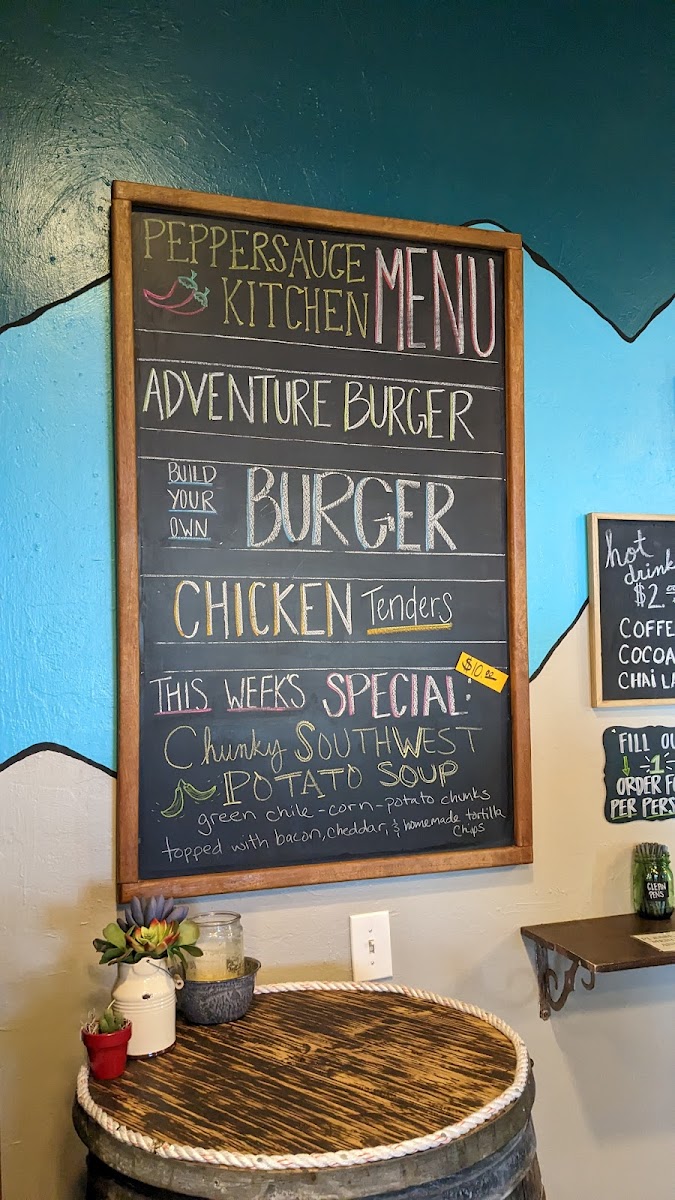 PEPPERSAUCE
KITCHEN
MENU
ADVENTURE BURGER
BUILD
YOUR
OWN
BURGER
CHICKEN Tenders
$10.00
THIS WEEK'S SPECIAL:
Chunky SOUTHWEST
POTATO SOUP
green chile-corn-potato chunks
topped with bacon, cheddar, & homemade tortilla
chips
hot
drink
$2.
COFFE
COCOA
CHAI LA
FILL OU
1
ORDER FO
PER PERS
CLEAN
PENS